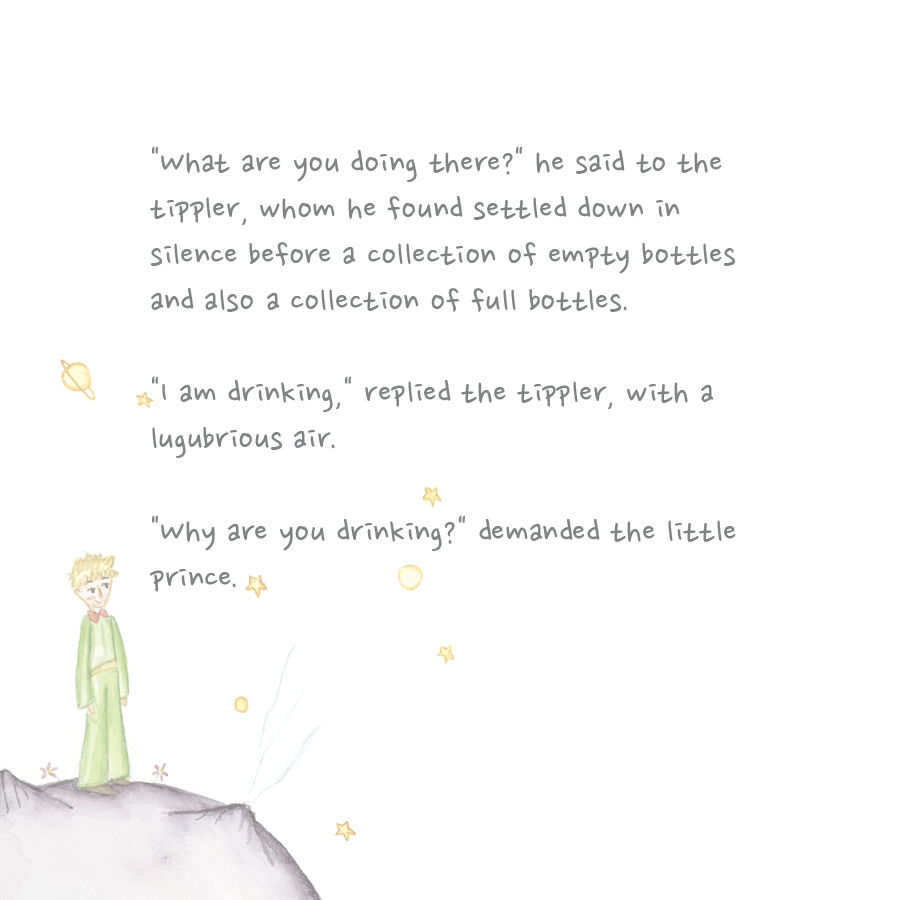 "What are you doing there?" he said to the
tippler, whom he found settled down in
silence before a collection of empty bottles
and also a collection of full bottles.
"I am drinking," replied the tippler, with a
lugubrious air.
"Why are you drinking?" demanded the little
prince.